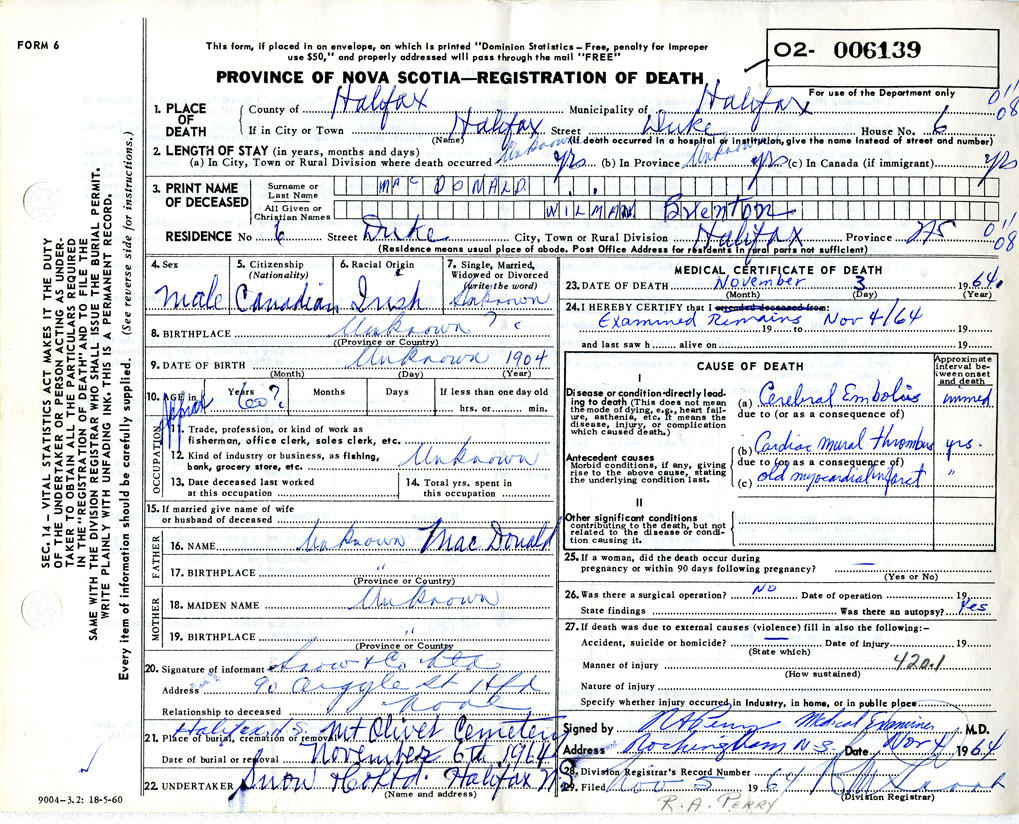 FORM 6
This form, if placed in an envelope, on which is printed "Dominion Statistics – Free, penalty for improper
use $50," and properly addressed will pass through the mail "FREE"
O2- 006139
For use of the Department only
PROVINCE OF NOVA SCOTIA—REGISTRATION OF DEATH
1. PLACE OF DEATH
County of Halifax Municipality of Halifax
If in City or Town Halifax Street Duke House No. 6
(Name) (If death occurred in a hospital or institution, give the name instead of street and number)
0'' 08
2. LENGTH OF STAY (in years, months and days)
(a) In City, Town or Rural Division where death occurred Unknown yrs (b) In Province Unknown yrs (c) In Canada (if immigrant) yrs
3. PRINT NAME OF DECEASED
Surname or Last Name MAC DONALD
All Given or Christian Names WILMAN Brenton
RESIDENCE No 6 Street Duke City, Town or Rural Division Halifax Province
(Residence means usual place of abode. Post Office Address for residents in rural parts not sufficient)
0'' 08
4. Sex Male
5. Citizenship (Nationality) Canadian
6. Racial Origin Irish
7. Single, Married, Widowed or Divorced (write the word) Unknown
8. BIRTHPLACE Unknown ?
(Province or Country)
9. DATE OF BIRTH Unknown 1904
(Month) (Day) (Year)
10. AGE in Years 60? Months Days If less than one day old
hrs. or min.
OCCUPATION
11. Trade, profession, or kind of work as
fisherman, office clerk, sales clerk, etc.
12. Kind of industry or business, as fishing,
bank, grocery store, etc. Unknown
13. Date deceased last worked
at this occupation
14. Total yrs. spent in
this occupation
15. If married give name of wife
or husband of deceased
FATHER
16. NAME Unknown Mac Donald
17. BIRTHPLACE "
(Province or Country)
MOTHER
18. MAIDEN NAME Unknown
19. BIRTHPLACE "
(Province or Country)
20. Signature of informant Snow & Co Ltd
Address 90 Argyle St Hfx
Relationship to deceased None
21. Place of burial, cremation or removal Halifax N.S. Mt Olivet Cemetery
Date of burial or removal November 6th, 1964
22. UNDERTAKER Snow & Co Ltd. Halifax N.S
(Name and address)
MEDICAL CERTIFICATE OF DEATH
23. DATE OF DEATH November 3 1964.
(Month) (Day) (Year)
24. I HEREBY CERTIFY that I attended deceased from:
Examined Remains 19 to Nov 4/64 19
and last saw h alive on 19
CAUSE OF DEATH
Approximate interval between onset and death
I
Disease or condition directly leading to death (This does not mean the mode of dying, e.g., heart failure, asthenia, etc. It means the disease, injury, or complication which caused death.)
(a) Cerebral Embolus immed
due to (or as a consequence of)
Antecedent causes
Morbid conditions, if any, giving rise to the above cause, stating the underlying condition last.
(b) Cardiac mural thrombus yrs.
due to (or as a consequence of)
(c) old myocardial infarct "
II
Other significant conditions
contributing to the death, but not related to the disease or condition causing it.
25. If a woman, did the death occur during
pregnancy or within 90 days following pregnancy? —
(Yes or No)
26. Was there a surgical operation? NO Date of operation 19
State findings Was there an autopsy? Yes
27. If death was due to external causes (violence) fill in also the following:–
Accident, suicide or homicide? — Date of injury 19
(State which)
Manner of injury 420.1
(How sustained)
Nature of injury
Specify whether injury occurred in industry, in home, or in public place
Signed by R A Perry Medical Examiner M.D.
Address Rockingham N.S. Date Nov 4 1964
28. Division Registrar's Record Number
29. Filed Nov 5 1964
(Division Registrar)
R.A. PERRY
9004–3.2: 18-5-60
SEC. 14 – VITAL STATISTICS ACT MAKES IT THE DUTY
OF THE UNDERTAKER OR PERSON ACTING AS UNDER-
TAKER TO OBTAIN ALL THE PARTICULARS REQUIRED
IN THE "REGISTRATION OF DEATH" AND TO FILE THE
SAME WITH THE DIVISION REGISTRAR WHO SHALL ISSUE THE BURIAL PERMIT.
WRITE PLAINLY WITH UNFADING INK. THIS IS A PERMANENT RECORD.
Every item of information should be carefully supplied. (See reverse side for instructions.)